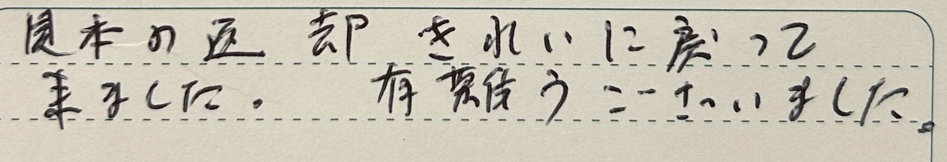 見本の返却きれいに戻って
来ました。 有難うございました。